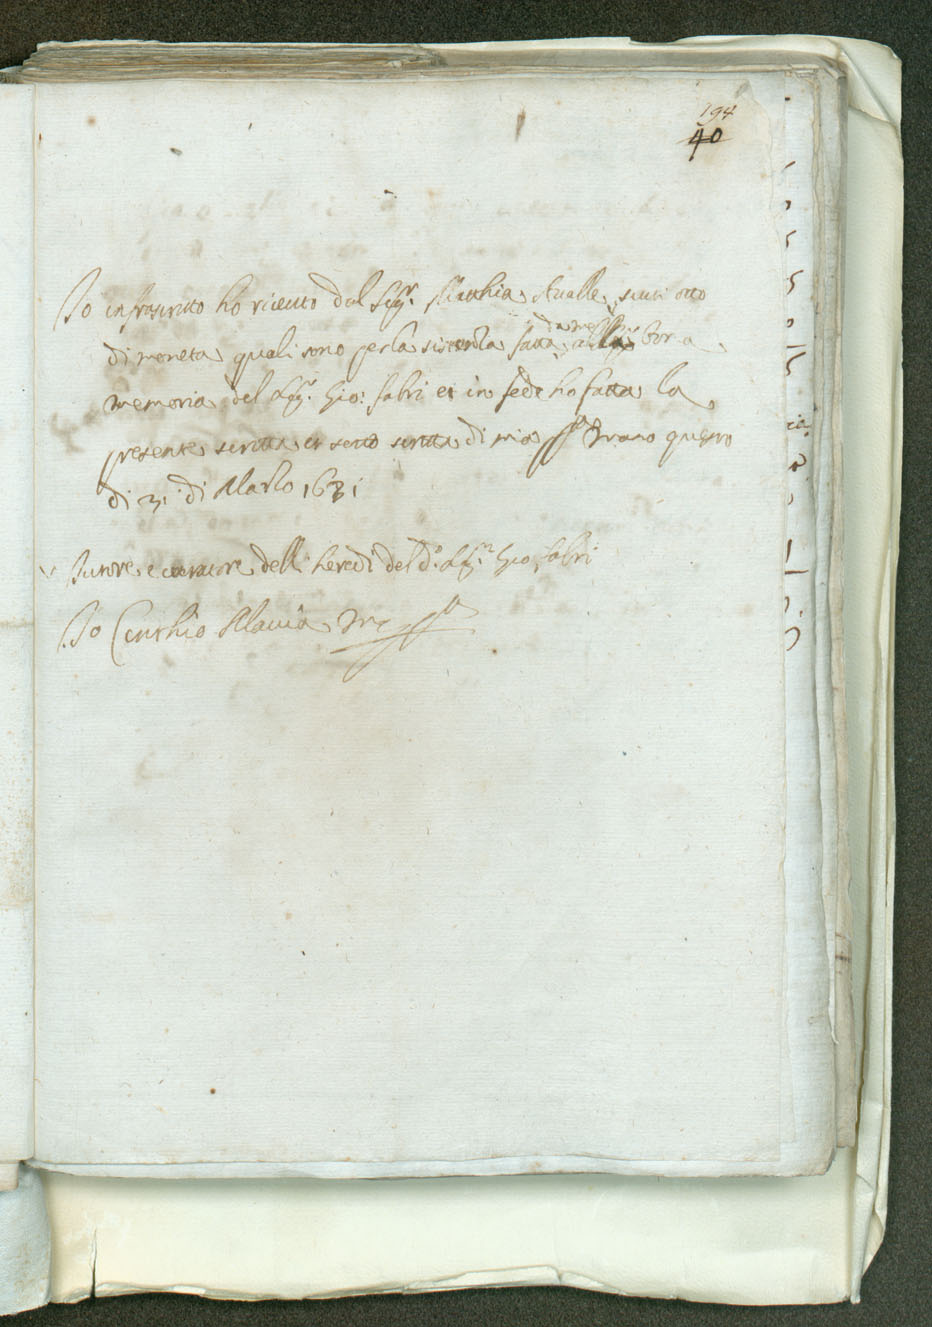 194
40
Io infrascritto ho riceuto dal Sigr. Matthia scudi otto
di moneta quali sono per la sistenza fatta bona
memoria del Sigr. Gio: fabri et in fede ho fatta la
presente scritta et sotto scritta di mia ppa mano questo
di 31 di Marzo 1631
Tutore e curatore delli heredi del d.o Sigr. Gio. fabri
Io Cinthio Clavia mo ppa